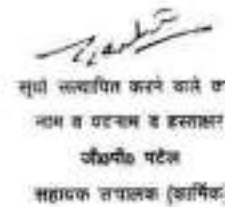 सूची सत्यापित करने वाले क
नाम व पदनाम व हस्ताक्षर
जी०पी० पटेल
सहायक संचालक (कार्मिक)